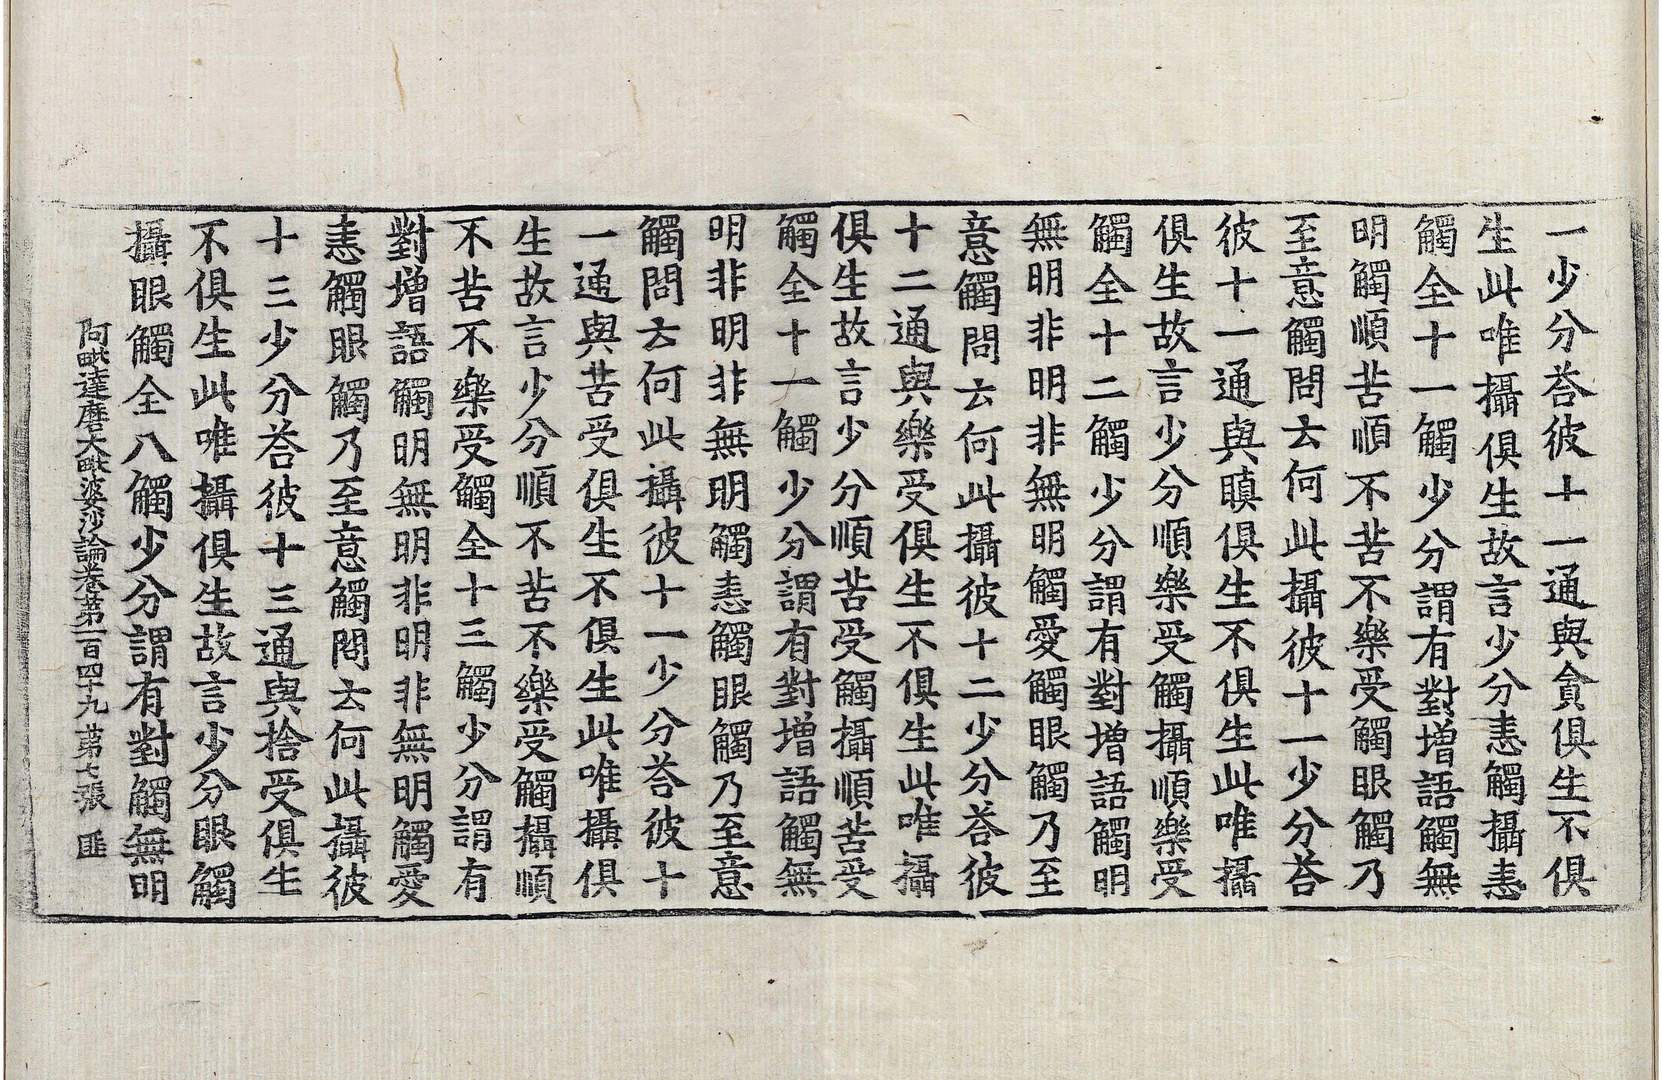 一少分荅彼十一通與貪俱生不俱
生此唯攝俱生故言少分恚觸攝恚
觸全十一觸少分謂有對增語觸無
明觸順苦順不苦不樂受觸眼觸乃
至意觸問云何此攝彼十一少分荅
彼十一通與瞋俱生不俱生此唯攝
俱生故言少分順樂受觸攝順樂受
觸全十二觸少分謂有對增語觸明
無明非明非無明觸愛觸眼觸乃至
意觸問云何此攝彼十二少分荅彼
十二通與樂受俱生不俱生此唯攝
俱生故言少分順苦受觸攝順苦受
觸全十一觸少分謂有對增語觸無
明非明非無明觸恚觸眼觸乃至意
觸問云何此攝彼十一少分荅彼十
一通與苦受俱生不俱生此唯攝俱
生故言少分順不苦不樂受觸攝順
不苦不樂受觸全十三觸少分謂有
對增語觸明無明非明非無明觸愛
恚觸眼觸乃至意觸問云何此攝彼
十三少分荅彼十三通與捨受俱生
不俱生此唯攝俱生故言少分眼觸
攝眼觸全八觸少分謂有對觸無明
阿毗達磨大毗婆沙論卷第一百四十九 第七張 匪